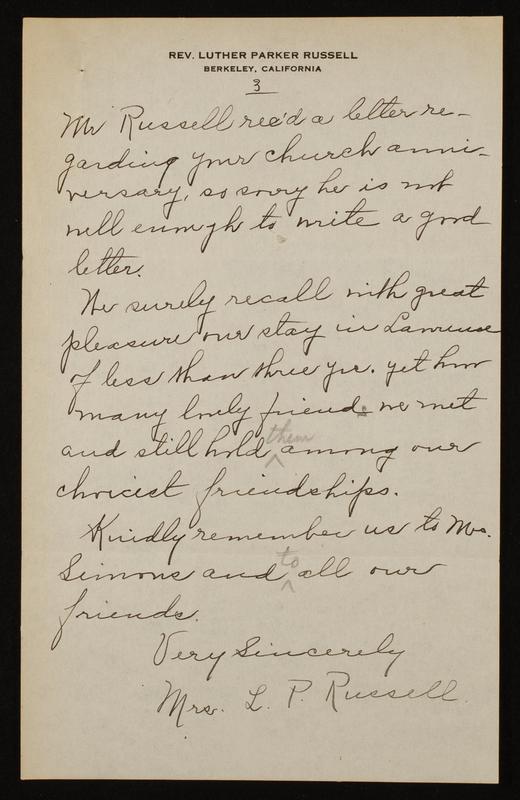 REV. LUTHER PARKER RUSSELL
BERKELEY, CALIFORNIA
3
Mr Russell rec'd a letter re-
garding your church anni-
versary, so sorry he is not
well enough to write a good
letter.
We surely recall with great
pleasure our stay in Lawrence
of less than three yrs. yet how
many lovely friends we met
them
and still hold ^ among our
choicest friendships.
Kindly remember us to Mrs.
to
Simons and ^ all our
friends.
Very Sincerely
Mrs. L. P. Russell.